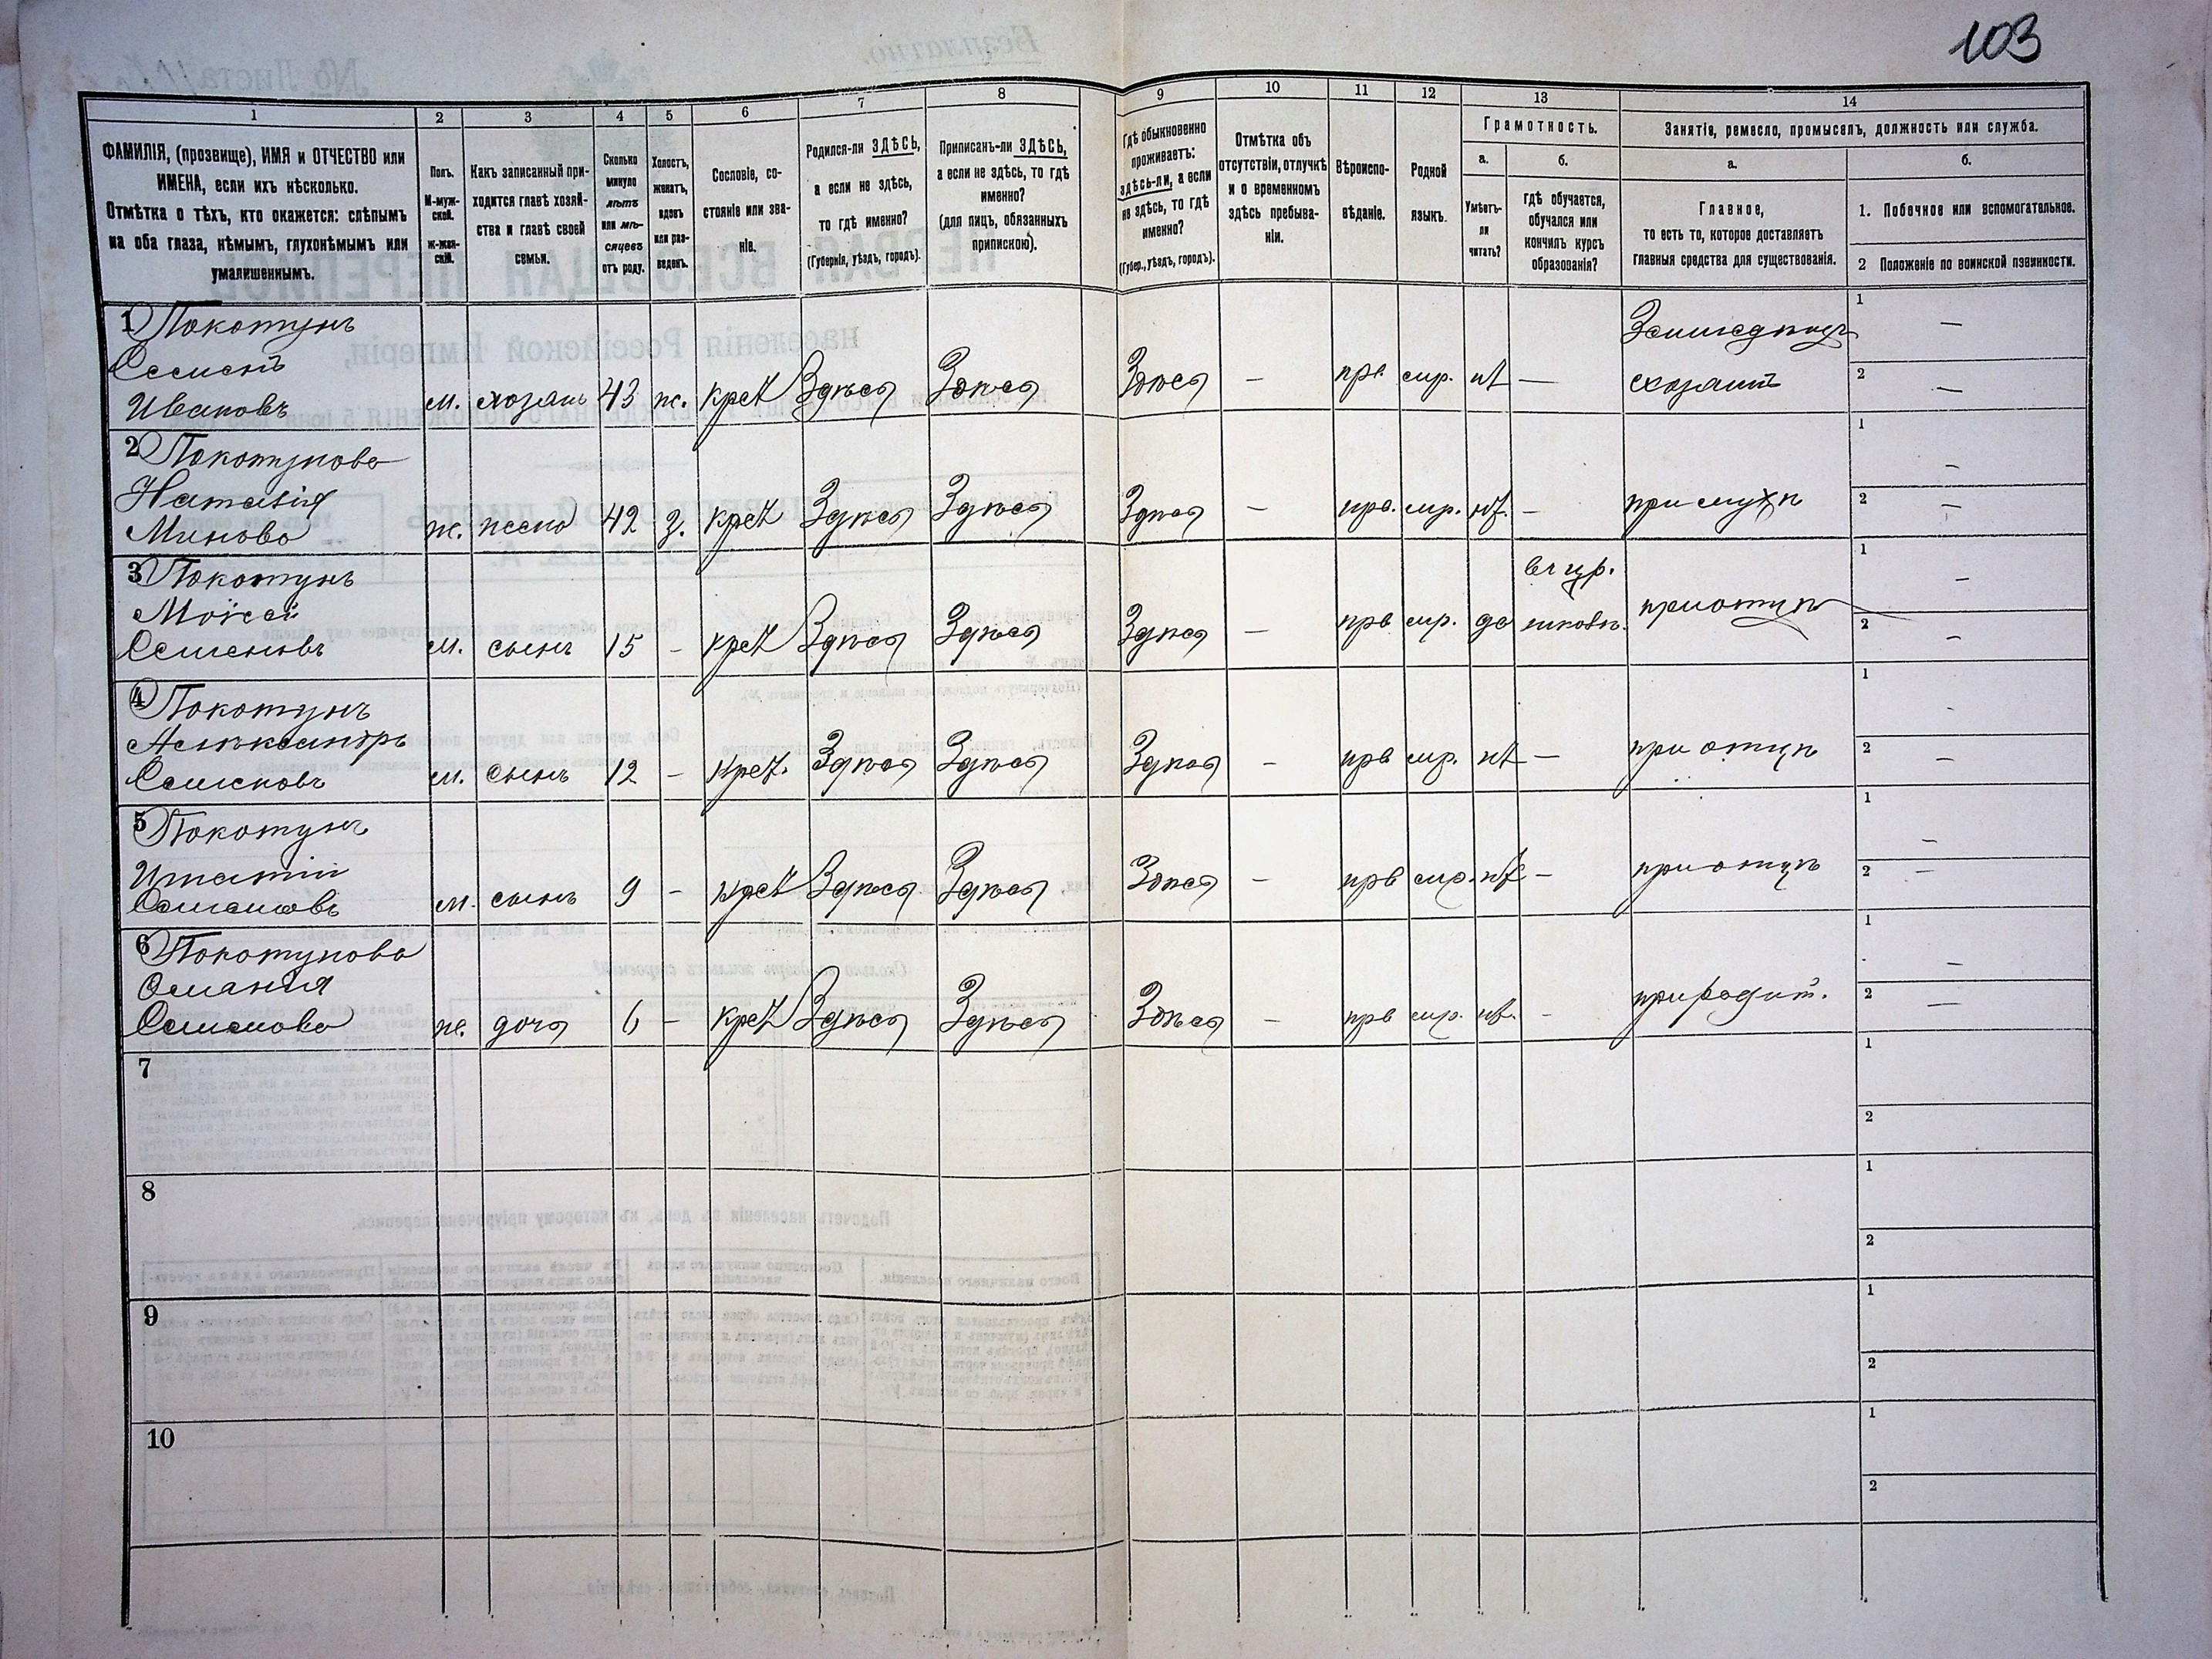 103
1 2 3 4 5 6 7 8 9 10 11 12 13 14
ФАМИЛІЯ, (прозвище), ИМЯ и ОТЧЕСТВО или
ИМЕНА, если ихъ нѣсколько.
Отмѣтка о тѣхъ, кто окажется: слѣпымъ
на оба глаза, нѣмымъ, глухонѣмымъ или
умалишеннымъ.
Полъ.
М-муж-
ской.
ж-жен-
скій.
Какъ записанный при-
ходится главѣ хозяй-
ства и главѣ своей
семьи.
Сколько
минуло
лѣтъ
или мѣ-
сяцевъ
отъ роду.
Холостъ,
женатъ,
вдовъ
или раз-
веденъ.
Сословіе, со-
стояніе или зва-
ніе.
Родился-ли ЗДѢСЬ,
а если не здѣсь,
то гдѣ именно?
(Губернія, уѣздъ, городъ).
Приписанъ-ли ЗДѢСЬ,
а если не здѣсь, то гдѣ
именно?
(для лицъ, обязанныхъ
припискою).
Гдѣ обыкновенно
проживаетъ:
здѣсь-ли, а если
не здѣсь, то гдѣ
именно?
(Губер., уѣздъ, городъ).
Отмѣтка объ
отсутствіи, отлучкѣ
и о временномъ
здѣсь пребыва-
ніи.
Вѣроиспо-
вѣданіе.
Родной
языкъ.
Грамотность.
а.
Умѣетъ-
ли
читать?
б.
гдѣ обучается,
обучался или
кончилъ курсъ
образованія?
Занятіе, ремесло, промыселъ, должность или служба.
а.
Главное,
то есть то, которое доставляетъ
главныя средства для существованія.
б.
1. Побочное или вспомогательное.
2 Положеніе по воинской повинности.
1 Покотунъ
Семенъ
Ивановъ м. хозяин 43 ж. крест Здѣсь Здѣсь Здѣсь — прв. мр. нѣт —
1 —
2 —
2 Покотунова
Наталія
Минова ж. жена 42 з. крест Здѣсь Здѣсь Здѣсь — прв. мр. нѣт. — при мужѣ
1 —
2 —
3 Покотунъ
Моисей
Семеновъ м. сынъ 15 - крест Здѣсь Здѣсь Здѣсь — прв мр. да
въ цр.
школѣ. при отцѣ
1 —
2 —
4 Покотунъ
Александръ
Семеновъ м. сынъ 12 - крест. Здѣсь Здѣсь Здѣсь — прв мр. нѣт — при отцѣ
1 -
2 —
5 Покотунъ
Игнатій
Семеновъ м. сынъ 9 - крест Здѣсь Здѣсь Здѣсь — прв мр. нѣт — при отцѣ
1 —
2 —
6 Покотунова
Семенова ж. дочь 6 — крест Здѣсь Здѣсь Здѣсь — прв мр. нѣт. - при родит.
1 —
2 —
7
1
2
8
1
2
9
1
2
10
1
2